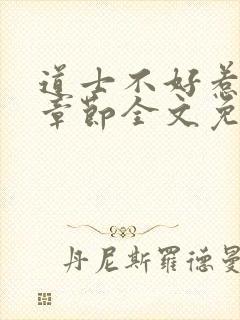 道士不好惹
章节全文免
丹尼斯羅德曼